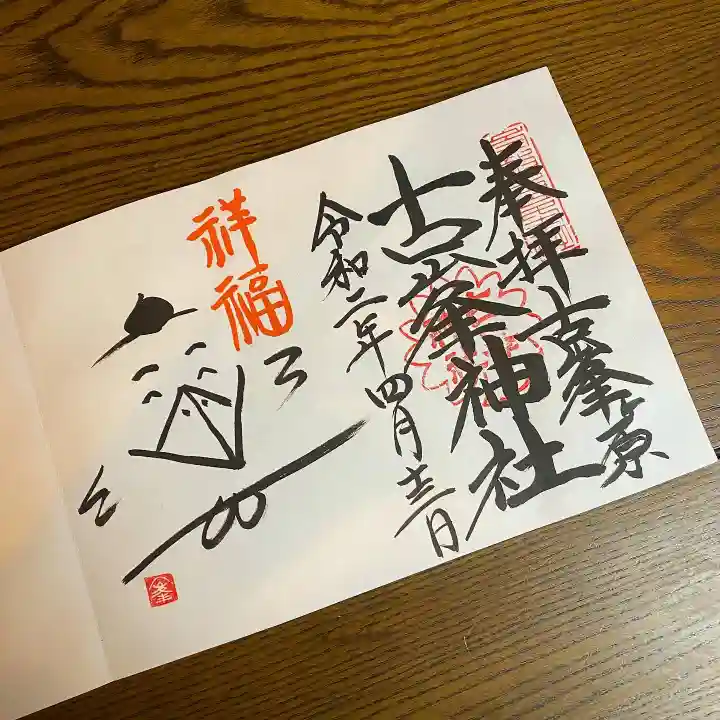 奉拝 古峯ヶ原
古峯神社
令和二年四月十三日
祥福
峯